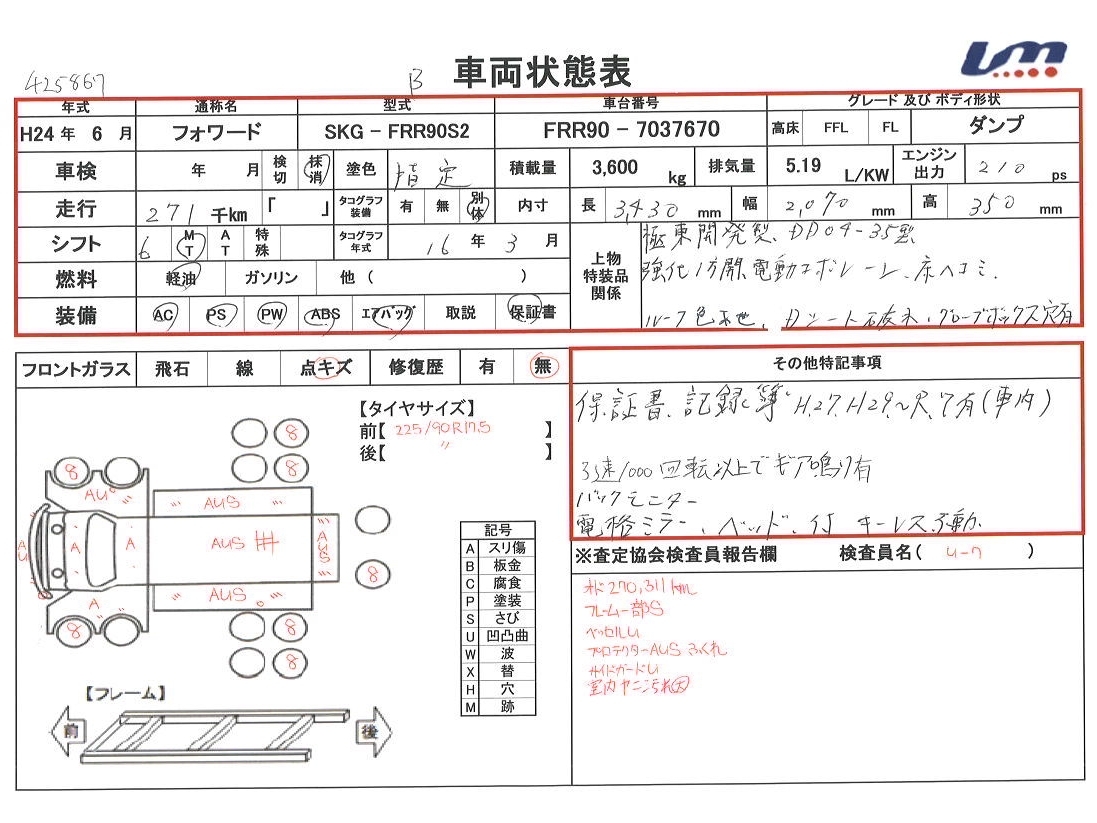 425867
B
車両状態表
年式 通称名 型式 車台番号 グレード 及び ボディ形状
H24 年 6 月 フォワード SKG - FRR90S2 FRR90 - 7037670 高床 FFL FL ダンプ
車検 年 月 検切 抹消 塗色 指定 積載量 3,600 kg 排気量 5.19 L/KW エンジン出力 210 ps
走行 271 千km 「 」 タコグラフ装備 有 無 別体 内寸 長 3,430 mm 幅 2,070 mm 高 350 mm
シフト 6 MT AT 特殊 タコグラフ年式 16 年 3 月 上物特装品関係 極東開発製、DD04-35型
燃料 軽油 ガソリン 他 ( ) 強化1方開、電動コボレーン、床ヘコミ、
装備 AC PS PW ABS エアバッグ 取説 保証書 ルーフ色あせ、Dシート破れ・グローブボックス穴有
フロントガラス 飛石 線 点キズ 修復歴 有 無 その他特記事項
保証書、記録簿 H.27,H29〜R.7有(車内)
3速1000回転以上でギア鳴り有
バックモニター
電格ミラー、ベッド、付 キーレス不動
【タイヤサイズ】
前【 225/90R17.5 】
後【 〃 】
8
8
8
AU
AUS
A
A
AU
AUS
AUS
8
A
AUS
8
8
8
記号
A スリ傷
B 板金
C 腐食
P 塗装
S さび
U 凹凸曲
W 波
X 替
H 穴
M 跡
【フレーム】
前 後
※査定協会検査員報告欄 検査員名( U-7 )
オド270,311km
フレーム一部S
ベッセルU
プロテクターAUS ふくれ
サイドガードU
室内ヤニ汚れ大